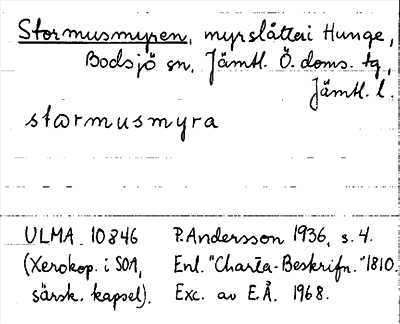 Stormusmyren, myrslåtteri Hunge,
Bodsjö sn, Jämtl. Ö. doms. tg,
Jämtl. l.
stωrmusmyra
ULMA 10846 P. Andersson 1936, s. 4.
(Xerokop. i SOA, Enl. "Charta-Beskrifn." 1810.
särsk. kapsel). Exc. av E.Å. 1968.